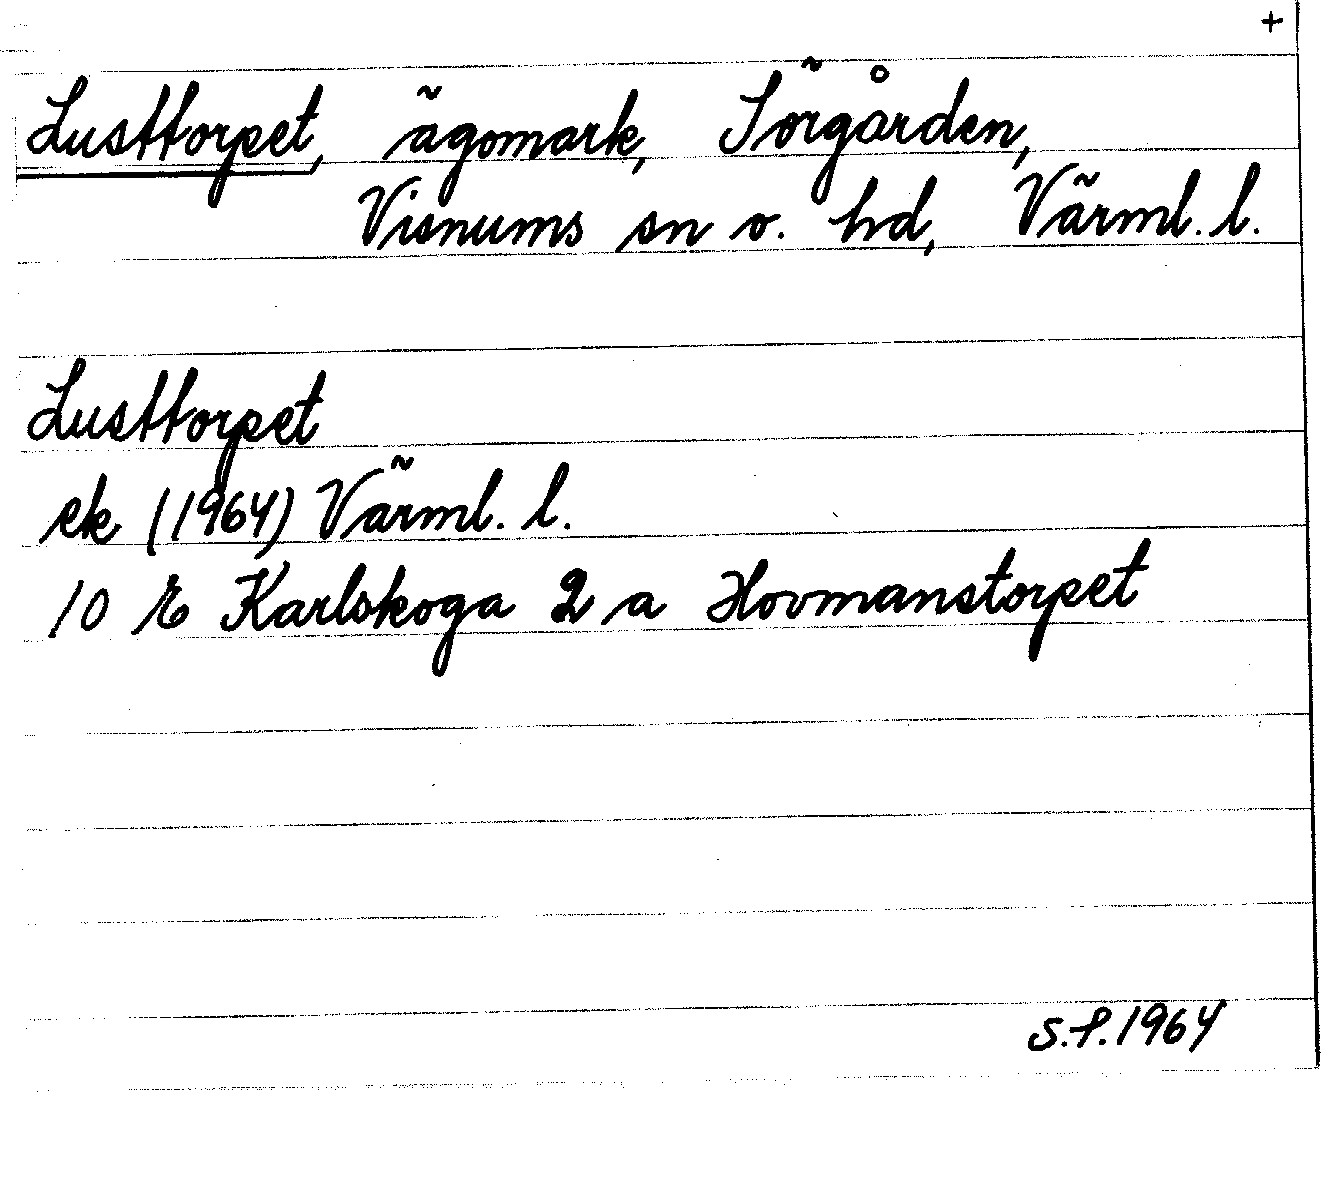 +
Lusttorpet, ägomark, Sörgården,
Visnums sn o. hd, Värml. l.
Lusttorpet
ek (1964) Värml. l.
10 E Karlskoga 2 a Hovmanstorpet
S.f. 1964